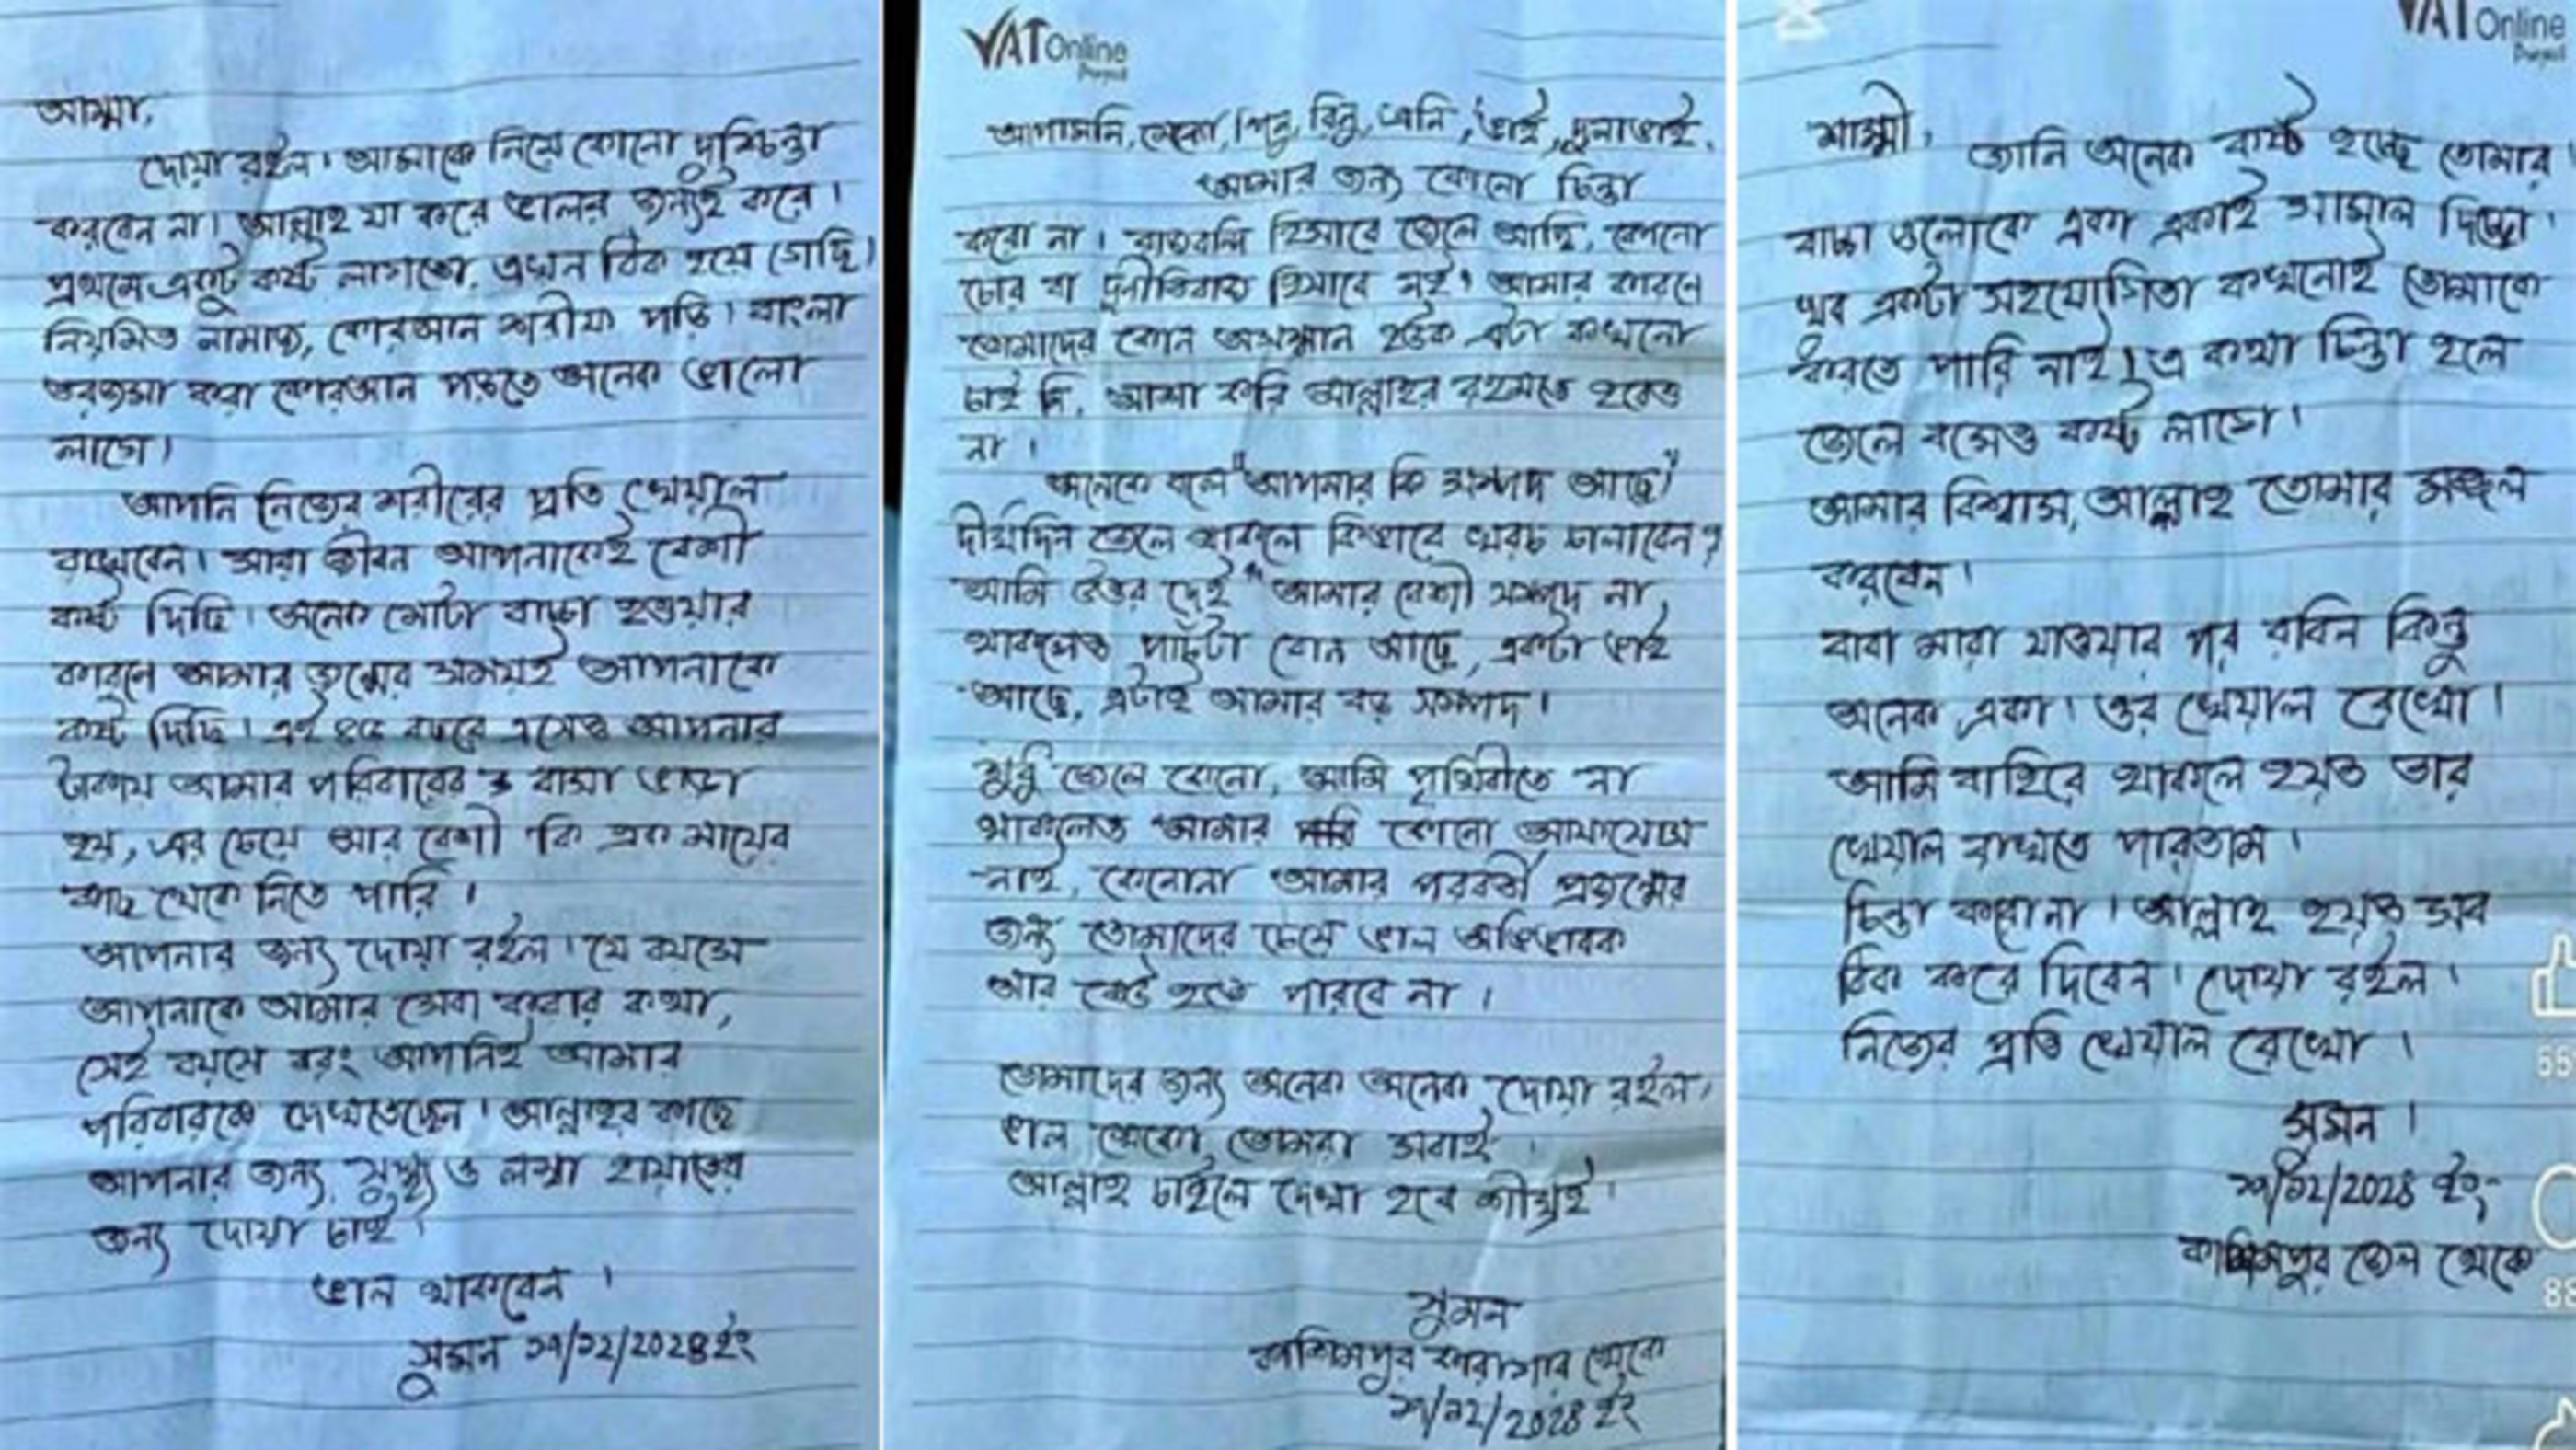 আম্মা,
দোয়া রইল। আমাকে নিয়ে কোনো দুশ্চিন্তা
করবেন না। আল্লাহ যা করে ভালর জন্যই করে।
প্রথমে একটু কষ্ট লাগতো, এখন ঠিক হয়ে গেছি।
নিয়মিত নামাজ, কোরআন শরীফ পড়ি। বাংলা
তরজমা করা কোরআন পড়তে অনেক ভালো
লাগে।
আপনি নিজের শরীরের প্রতি খেয়াল
রাখবেন। সারা জীবন আপনাকেই বেশী
কষ্ট দিছি। অনেক মোটা বাচ্চা হওয়ার
কারনে আমার জন্মের সময়ই আপনাকে
কষ্ট দিছি। এই ৪৫ বছরে এসেও আপনার
টাকায় আমার পরিবারের বাসা ভাড়া
হয়, এর চেয়ে আর বেশী কি এক মায়ের
কাছ থেকে নিতে পারি।
আপনার জন্য দোয়া রইল। যে বয়সে
আপনাকে আমার সেবা করার কথা,
সেই বয়সে বরং আপনিই আমার
পরিবারকে দেখতেছেন। আল্লাহর কাছে
আপনার জন্য, সুস্থ্য ও লম্বা হায়াতের
জন্য দোয়া চাই।
ভাল থাকবেন।
সুমন ২৭/১২/2028 ইং
VAT Online
Project
আপামনি, বিনু, এনি, ভাই, দুলাভাই,
আমার জন্য কোনো চিন্তা
করো না। রাজবন্দি হিসাবে জেলে আছি, কোনো
চোর বা দুর্নীতিবাজ হিসাবে নই। আমার কারনে
তোমাদের কোন অসম্মান হউক এটা কখনো
চাই নি, আশা করি আল্লাহর রহমতে হবেও
না।
অনেকে বলে "আপনার কি সম্পদ আছে"
দীর্ঘদিন জেলে থাকলে কিভাবে খরচ চালাবেন?
আমি উত্তর দেই "আমার বেশী সম্পদ না
থাকলেও পাঁচটা বোন আছে, একটা ভাই
আছে, এটাই আমার বড় সম্পদ।
শুধু জেলে কেনো, আমি পৃথিবীতে না
থাকলেও আমার কোনো আফসোস
নাই, কেনোনা আমার পরবর্তী প্রজন্মের
জন্য তোমাদের চেয়ে ভাল অভিভাবক
আর কেউ হতে পারবে না।
তোমাদের জন্য অনেক অনেক দোয়া রইল,
ভাল থেকো, তোমরা সবাই।
আল্লাহ চাইলে দেখা হবে শীঘ্রই।
সুমন
কাশিমপুর কারাগার থেকে
২৭/১২/2028 ইং
VAT Online
Project
শাম্মী,
জানি অনেক কষ্ট হচ্ছে তোমার।
বাচ্চা গুলোকে একা একাই সামাল দিচ্ছো।
খুব একটা সহযোগিতা কখনোই তোমাকে
করতে পারি নাই। এ কথা চিন্তা হলে
জেলে বসেও কষ্ট লাগে।
আমার বিশ্বাস, আল্লাহ তোমার মঙ্গল
করবেন।
বাবা মারা যাওয়ার পর রবিন কিন্তু
অনেক একা। ওর খেয়াল রেখো।
আমি বাহিরে থাকলে হয়ত তার
খেয়াল রাখতে পারতাম।
চিন্তা করোনা। আল্লাহ হয়ত সব
ঠিক করে দিবেন। দোয়া রইল।
নিজের প্রতি খেয়াল রেখো।
সুমন।
২৭/১২/2028 ইং
কাশিমপুর জেল থেকে